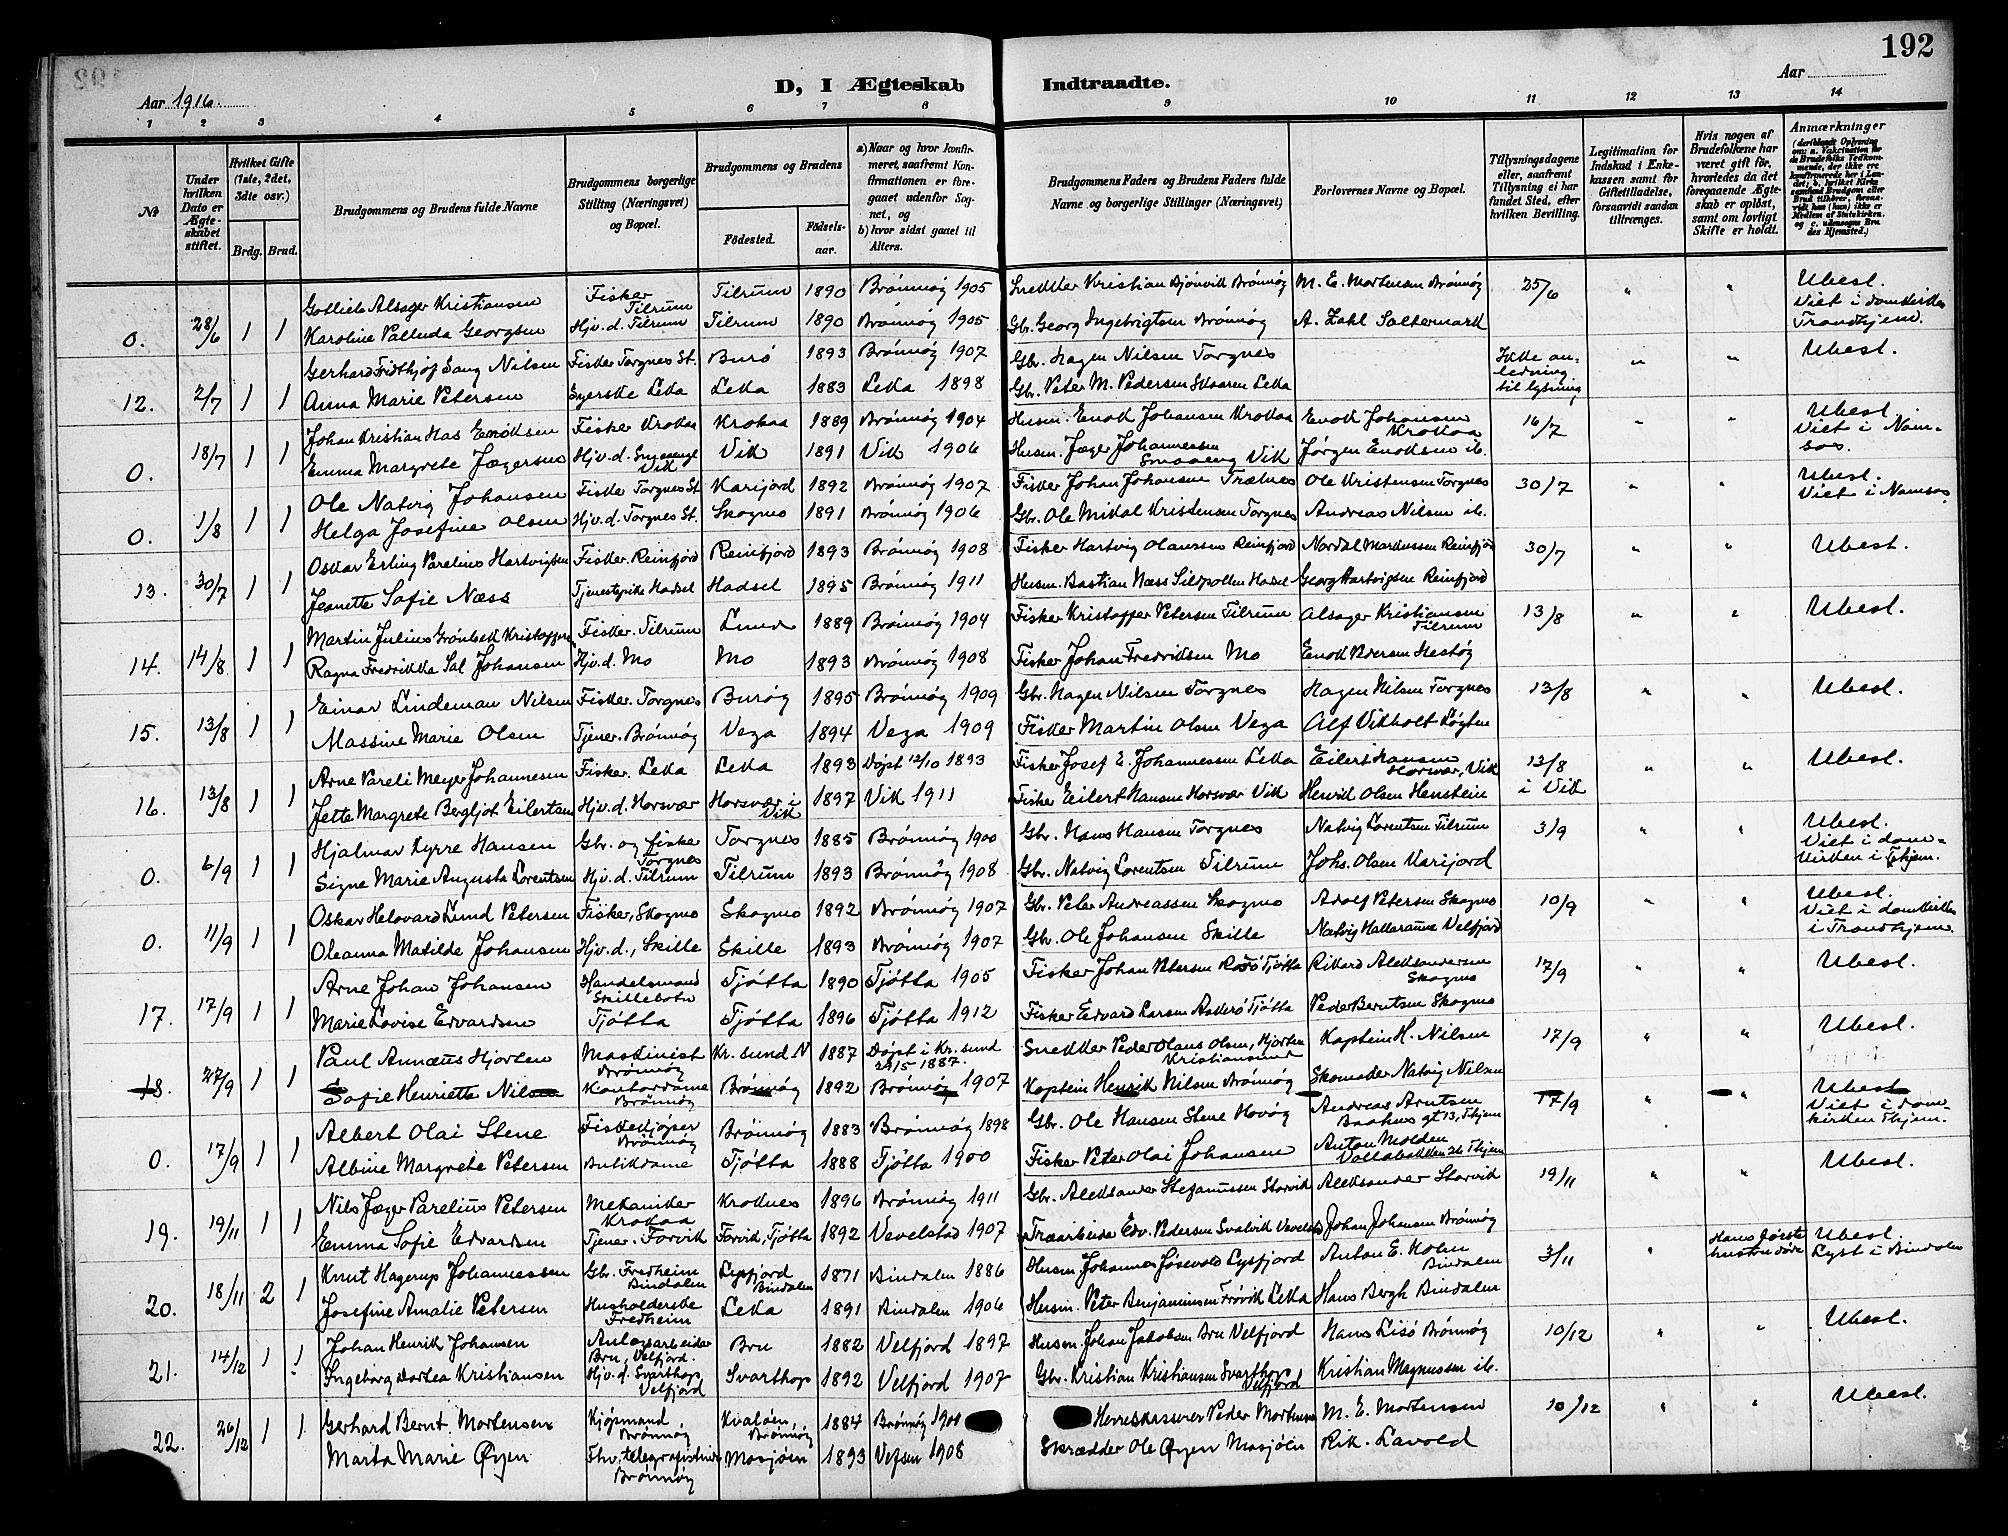 192
Aar 1916.
D, I Ægteskab Indtraadte.
Aar
1 2 3 4 5 6 7 8 9 10 11 12 13 14
No
Under hvilken Dato er Ægteskabet stiftet.
Hvilket Gifte (1ste, 2det, 3die osv.)
Brdg. Brud.
Brudgommens og Brudens fulde Navne
Brudgommens borgerlige Stilling (Næringsvei) og Bopæl.
Brudgommens og Brudens
Fødested. Fødselsaar.
a) Naar og hvor konfirmeret, saafremt Konfirmationen er foregaaet udenfor Sognet, og
b) hvor sidst gaaet til Alters.
Brudgommens Faders og Brudens Faders fulde Navne og borgerlige Stillinger (Næringsvei)
Forlovernes Navne og Bopæl.
Tillysningsdagene eller, saafremt Tillysning ei har fundet Sted, efter hvilken Bevilling.
Legitimation for Indskud i Enkekassen samt for Giftetilladelse, forsaavidt saadan tiltrænges.
Hvis nogen af Brudefolkene har været gift før, hvorledes da det foregaaende Ægteskab er opløst, samt om lovligt Skifte er holdt.
Anmærkninger
Gotlieb Alsager Kristiansen Fisker Tilrum Tilrum 1890 Brønnøy 1905 Snekker Kristian Bjørnvik Brønnøy M. E. Mortensen Brønnøy 25/6 " " Ubesl. Viet i domkirken Trondhjem.
0. 28/6 1 1 Karoline Palluda Georgsen Hjv. d. Tilrum Tilrum 1890 Brønnøy 1905 Gbr. Georg Ingebrigtsen Brønnøy A. Zahl Saltermark
Gerhard Fridthjof Sang Nilsen Fisker Torgnes St. Burø 1893 Brønnøy 1907 Gbr. Hagen Nilsen Torgnes Ikke anledning til lysning " " Ubesl.
12. 2/7 1 1 Anna Marie Petersen Syerske Leka Leka 1883 Leka 1898 Gbr. Peter M. Pedersen Skaaren Leka
Johan Kristian Has Enoksen Fisker Krokaa Krokaa 1889 Brønnøy 1904 Husm. Enok Johansen Krokaa Enok Johansen Krokaa 16/7 " " Ubesl. Viet i Namsos.
0. 18/7 1 1 Emma Margrete Jægersen Hjv. d. Smaaengl Vik Vik 1891 Vik 1906 Husm. Jæger Johannessen Smaaeng Vik Jørgen Enoksen ib.
Ole Natvig Johansen Fisker Torgnes St. Karijord 1892 Brønnøy 1907 Fisker Johan Johansen Trælnes Ole Kristensen Torgnes 30/7 " " Ubesl. Viet i Namsos
0. 1/8 1 1 Helga Josefine Olsen Hjv. d. Torgnes St. Skogmo 1891 Brønnøy 1906 Gbr. Ole Mikal Kristensen Torgnes Andreas Nilsen ib.
Oskar Erling Parelius Hartvigsen Fisker. Reinfjord Reinfjord 1893 Brønnøy 1908 Fisker Hartvig Olaussen Reinfjord Nordal Markussen Reinfjord 30/7 " " Ubesl.
13. 30/7 1 1 Jeanette Sofie Næss Tjenestepike Hadsel Hadsel 1895 Brønnøy 1911 Husm. Bastian Næss Sildpollen Hadsel Georg Hartvigsen Reinfjord
Martin Julius Grønbek Kristoffersen Fisker. Tilrum Lund 1889 Brønnøy 1904 Fisker Kristoffer Petersen Tilrum Alsager Kristiansen Tilrum 13/8 " " Ubesl.
14. 14/8 1 1 Ragna Fredrikke Sal Johansen Hjv. d. Mo Mo 1893 Brønnøy 1908 Fisker Johan Fredriksen Mo Enok Pedersen Hestøy
Einar Lindeman Nilsen Fisker. Torgnes Burøy 1895 Brønnøy 1909 Gbr. Hagen Nilsen Torgnes Hagen Nilsen Torgnes 13/8 " " Ubesl.
15. 13/8 1 1 Massine Marie Olsen Tjener. Brønnøy Vega 1894 Vega 1909 Fisker Martin Olsen Vega Alf Vikholt Løgten
Arne Pareli Meyer Johannesen Fisker. Leka Leka 1893 Døpt 12/10 1893 Fisker Josef E. Johannessen Leka Eilert Hansen Horsvær, Vik 13/8 i Vik " " Ubesl.
16. 13/8 1 1 Jette Margrete Bergljot Eilertsen Hjv. d. Horsvær Horsvær i Vik 1897 Vik 1911 Fisker Eilert Hansen Horsvær Vik Henrik Olsen Henstein
Hjalmar Kyrre Hansen Gbr. og fisker Torgnes Torgnes 1885 Brønnøy 1900 Gbr. Hans Hansen Torgnes Natvig Lorentsen Tilrum 3/9 " " Ubesl. Viet i domkirken i Thjem.
0. 6/9 1 1 Signe Marie Augusta Lorentsen Hjv. d. Tilrum Tilrum 1893 Brønnøy 1908 Gbr. Natvig Lorentsen Tilrum Johs. Olsen Varijord
Oskar Helovard Lund Petersen Fisker, Skogmo Skogmo 1892 Brønnøy 1907 Gbr. Peter Andreassen Skogmo Adolf Petersen Skogmo 10/9 " " Ubesl. Viet i domkirken i Trondhjem
0. 11/9 1 1 Oleanna Matilde Johansen Hjv. d., Skille Skille 1893 Brønnøy 1907 Gbr. Ole Johansen Skille Natvig Hallaraune Velfjord
Arne Johan Johansen Handelsmand Skillebotn Tjøtta 1890 Tjøtta 1905 Fisker Johan Petersen Rosø Tjøtta Rikard Aleksandersen Skogmo 17/9 " " Ubesl.
17. 17/9 1 1 Marie Lovise Edvardsen Tjøtta Tjøtta 1896 Tjøtta 1912 Fisker Edvard Larsen Askerø Tjøtta Peder Berntsen Skogmo
Paul Annæus Hjorten Maskinist Brønnøy Kr. sund N 1887 Døpt i Kr. sund 29/5 1887. Snekker Peder Olaus Olsen, Hjorten Kristiansund Kaptein H. Nilsen 17/9 " " Ubesl.
18. 27/9 1 1 Sofie Henriette Nilsen Kontordame Brønnøy Brønnøy 1892 Brønnøy 1907 Kaptein Henrik Nilsen Brønnøy Skomaker Natvig Nilsen
Albert Olai Stene Fiskekjøper Brønnøy Brønnøy 1883 Brønnøy 1898 Gbr. Ole Hansen Stene Hovøy Andreas Arntsen Baahus gt 13, Thjem 17/9 " " Ubesl. Viet i domkirken Thjem.
0. 17/9 1 1 Albine Margrete Petersen Butikdame Tjøtta 1888 Tjøtta 1900 Fisker Peter Olai Johansen Anton Molden Vollabakken 26 Thjem
Nils Jæger Parelius Petersen Mekaniker Krokaa Kroknes 1896 Brønnøy 1911 Gbr. Aleksander Stefanussen Storvik Aleksander Storvik 19/11 " " Ubesl.
19. 19/11 1 1 Emma Sofie Edvardsen Tjener. Forvik Forvik, Tjøtta 1892 Vevelstad 1907 Træarbeider Edv. Pedersen Svalvik Vevelstad Johan Johansen Brønnøy
Knut Hagerup Johannessen Gbr. Fredheim Bindalen Lysfjord Bindalen 1871 Bindalen 1886 Husm. Johannes Jøsevold Lysfjord Anton E. Holm Bindalen 3/11 " Hans første hustru død Ubesl. Lyst i Bindalen
20. 18/11 2 1 Josefine Amalie Petersen Husholderske Fredheim Leka 1891 Bindalen 1906 Husm. Peter Benjaminsen Frøvik Leka Hans Bergh Bindalen
Johan Henrik Johansen Anlægsarbeider Bru, Velfjord. Bru 1882 Velfjord 1897 Husm. Johan Jakobsen Bru Velfjord Hans Lisø Brønnøy 10/12 " " Ubesl.
21. 14/12 1 1 Ingeborg Dortea Kristiansen Hjv. d. Svarthop Velfjord Svarthop 1892 Velfjord 1907 Gbr. Kristian Kristiansen Svarthop Velfjord Kristian Magnussen ib.
Gerhard Bernt Mortensen Kjøpmand, Brønnøy Kvaløen, Brønnøy 1884 Brønnøy 1900 Herredskasserer Peder Mortensen M. E. Mortensen 10/12 " " Ubesl.
22. 26/12 1 1 Marta Marie Øyen Fhv. telegrafistinde Brønnøy Mosjøen 1893 Vefsen 1908 Skrædder Ole Øyen Mosjøen Rik. Lavold